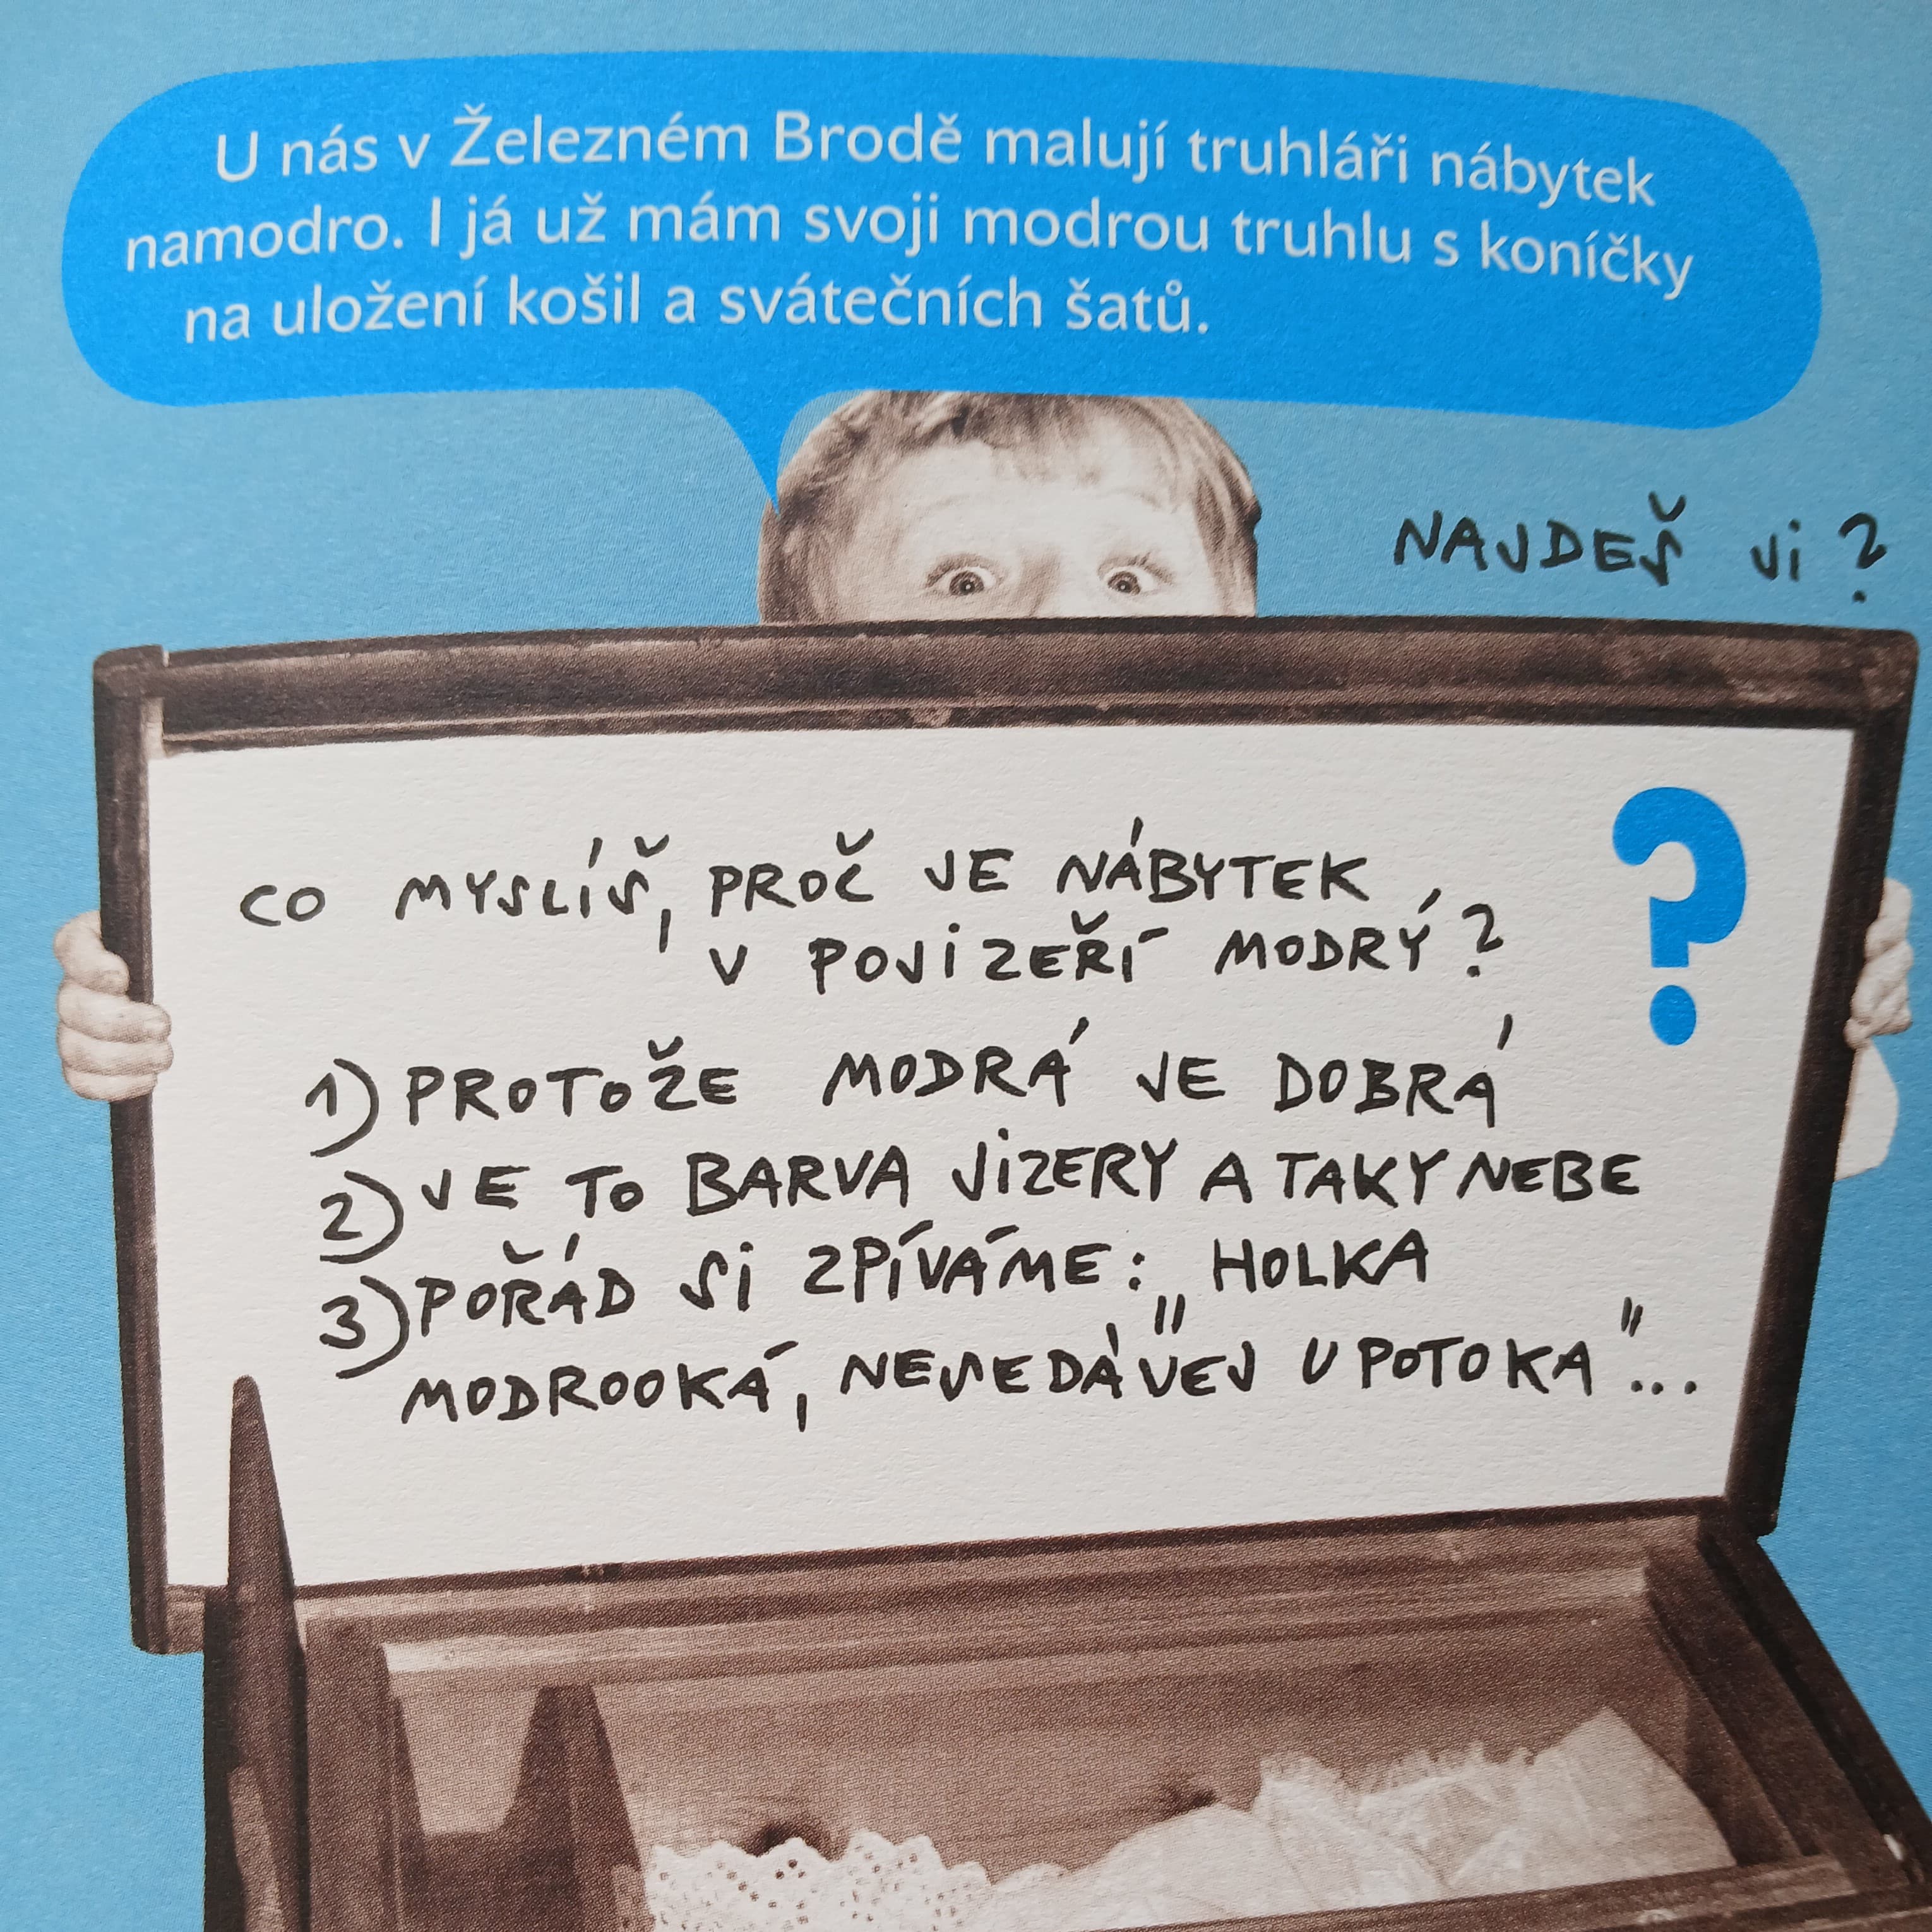 U nás v Železném Brodě malují truhláři nábytek
namodro. I já už mám svoji modrou truhlu s koníčky
na uložení košil a svátečních šatů.
NAJDEŠ JI?
?
CO MYSLÍŠ, PROČ JE NÁBYTEK
V POJIZEŘÍ MODRÝ?
1) PROTOŽE MODRÁ JE DOBRÁ
2) JE TO BARVA JIZERY A TAKY NEBE
3) POŘÁD SI ZPÍVÁME: „HOLKA
MODROOKÁ, NESEDÁVEJ U POTOKA"...